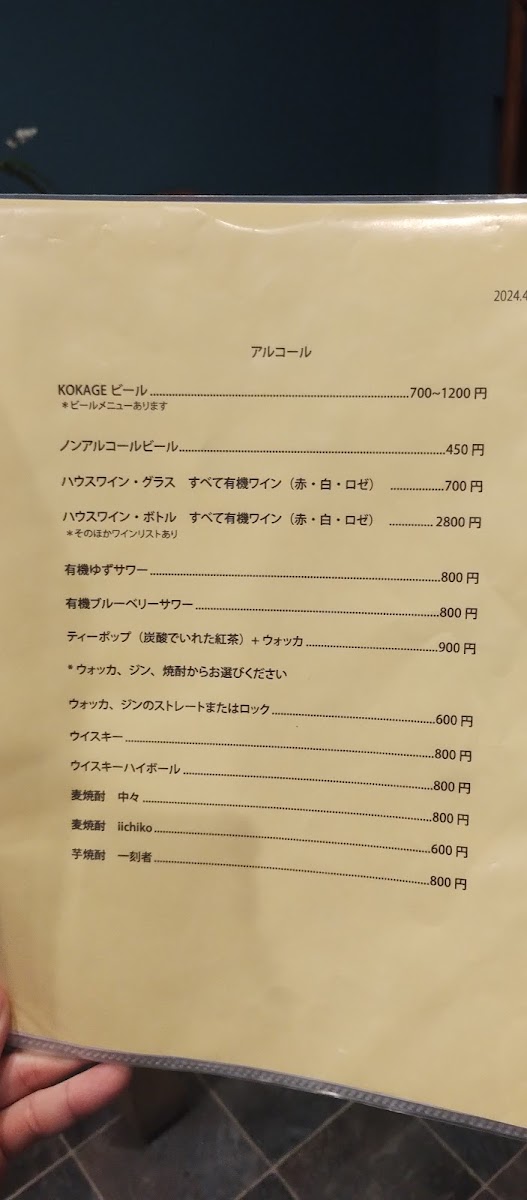 2024.4
アルコール
KOKAGE ビール 700~1200 円
＊ビールメニューあります
ノンアルコールビール 450 円
ハウスワイン・グラス　すべて有機ワイン（赤・白・ロゼ） 700 円
ハウスワイン・ボトル　すべて有機ワイン（赤・白・ロゼ） 2800 円
＊そのほかワインリストあり
有機ゆずサワー 800 円
有機ブルーベリーサワー 800 円
ティーポップ（炭酸でいれた紅茶）+ ウォッカ 900 円
* ウォッカ、ジン、焼酎からお選びください
ウォッカ、ジンのストレートまたはロック 600 円
ウイスキー 800 円
ウイスキーハイボール 800 円
麦焼酎　中々 800 円
麦焼酎　iichiko 600 円
芋焼酎　一刻者 800 円